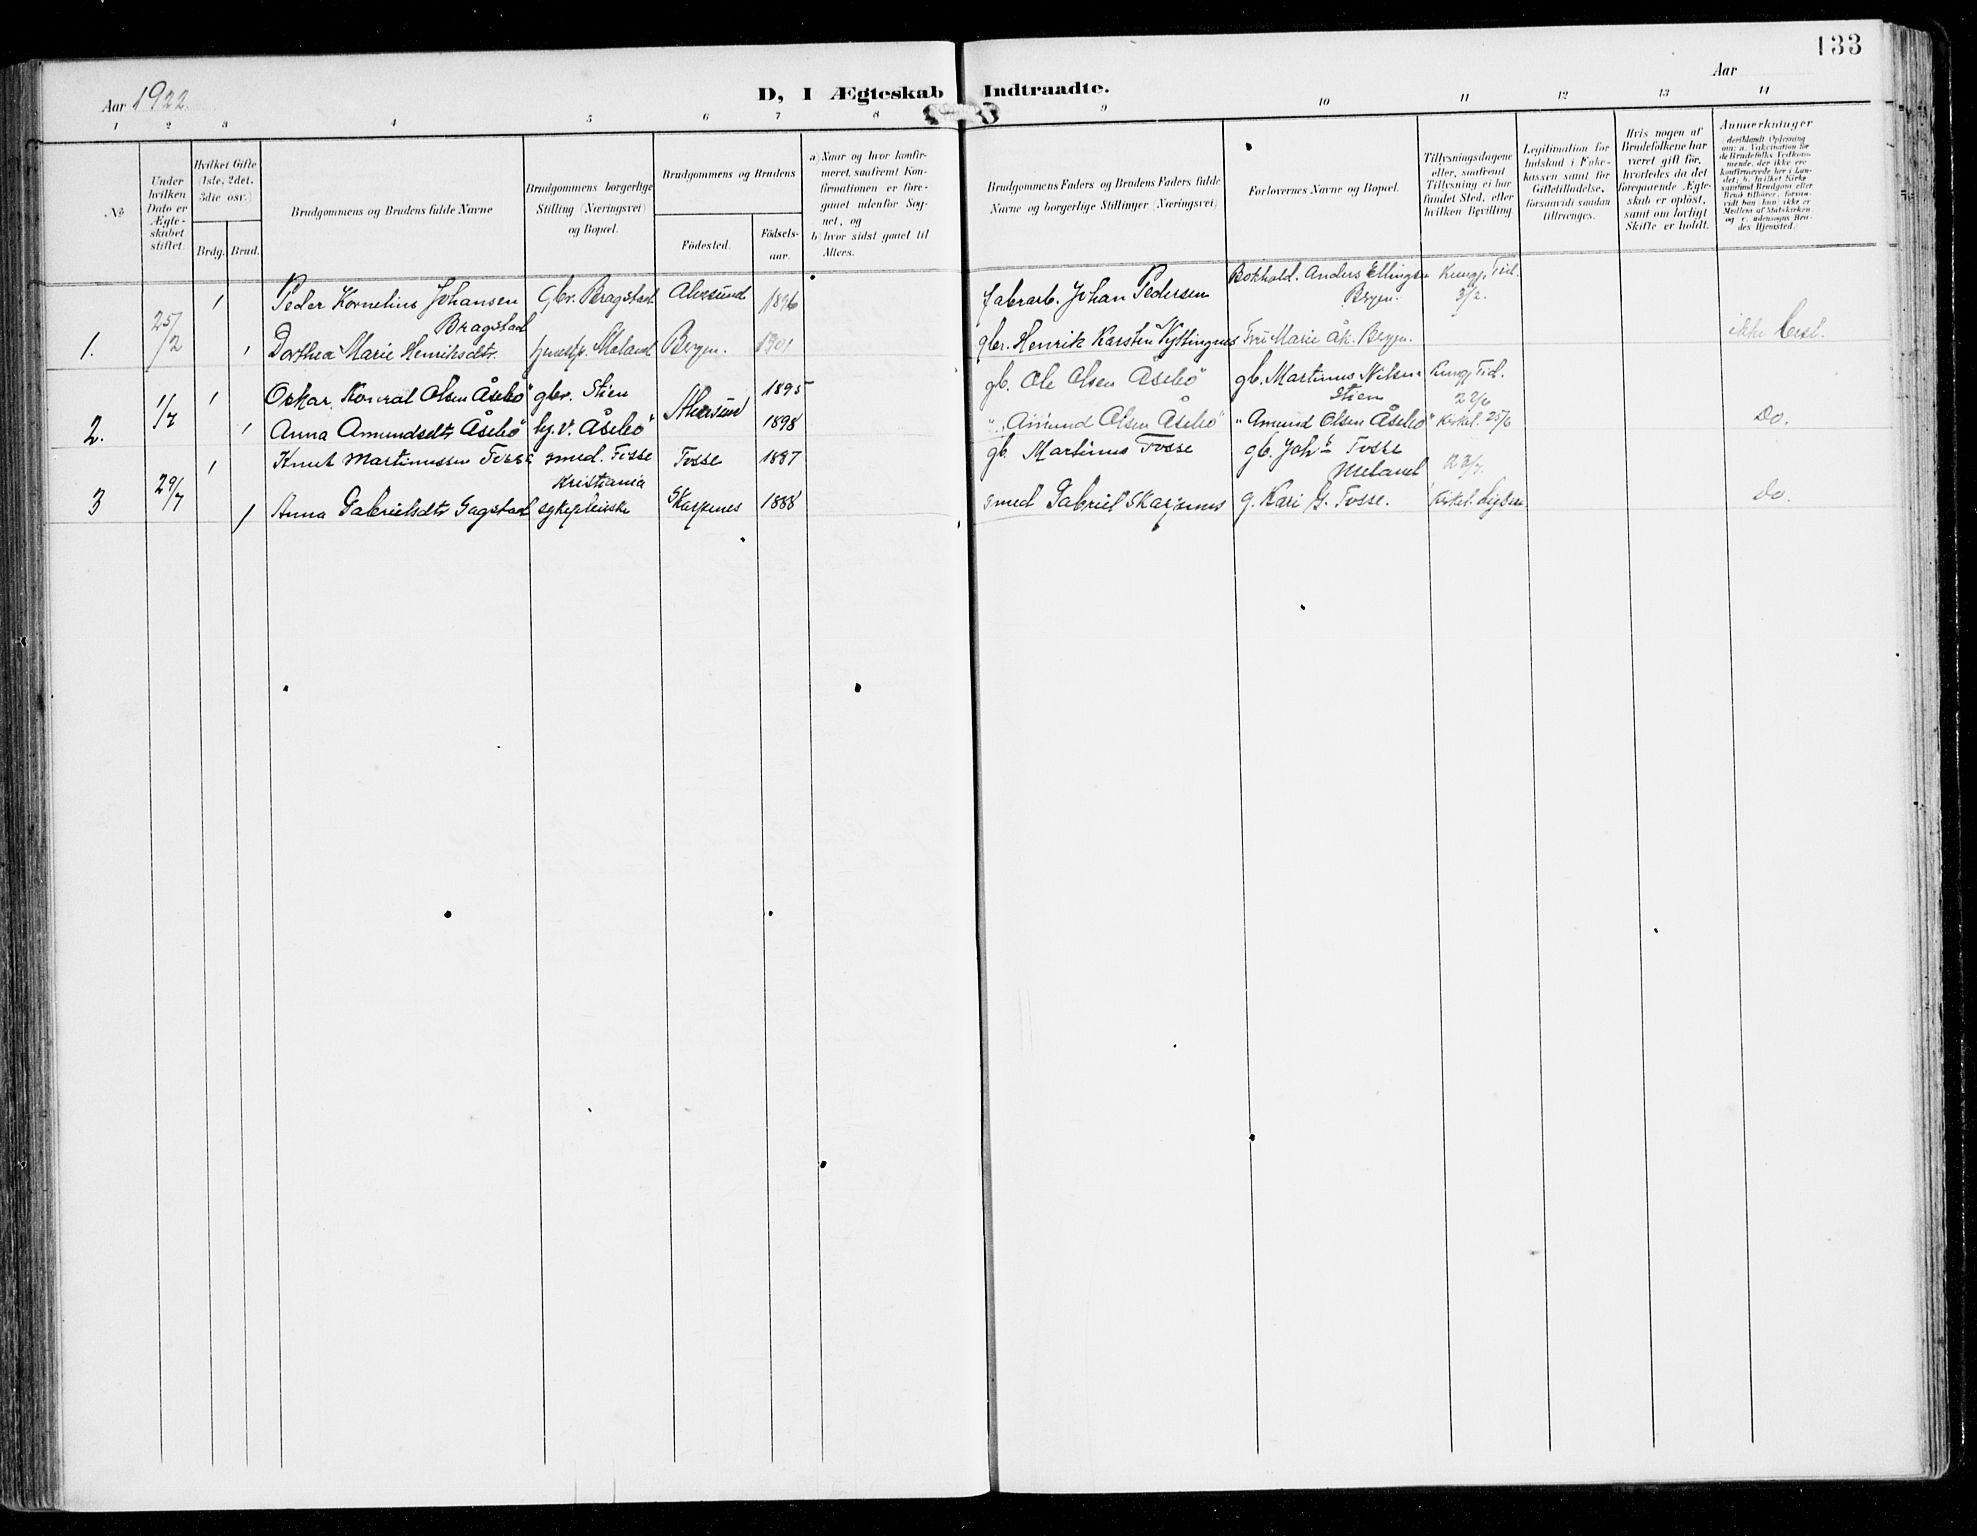 133
Aar 1922.
D, I Ægteskab Indtraadte.
Aar
1 2 3 4 5 6 7 8 9 10 11 12 13 14
№
Under hvilken Dato er Ægteskabet stiftet.
Hvilket Gifte (1ste, 2det, 3die osv.)
Brdg. Brud.
Brudgommens og Brudens fulde Navne
Brudgommens borgerlige Stilling (Næringsvei) og Bopæl.
Brudgommens og Brudens
Födested.
Födselsaar.
a) Naar og hvor konfirmeret, saafremt Konfirmationen er foregaaet udenfor Sognet, og
b) hvor sidst gaaet til Alters.
Brudgommens Faders og Brudens Faders fulde Navne og borgerlige Stillinger (Næringsvei)
Forlovernes Navne og Bopæl.
Tillysningsdagene eller, saafremt Tillysning ei har fundet Sted, efter hvilken Bevilling.
Legitimation for Indskud i Enkekassen samt for Giftetilladelse, forsaavidt saadan tiltrænges.
Hvis nogen af Brudefolkene har været gift før, hvorledes da det foregaaende Ægteskab er opløst, samt om lovligt Skifte er holdt.
Anmærkninger
1. 25/2
1 Peder Kornelius Johansen Bragstad gbr. Bragstad Alvesund 1896 fabrarb. Johan Pedersen Bokhold. Anders Ellingsen Bergen. Kungj. Tid. 3/2.
1 Dorthea Marie Henriksdtr. Bergen. 1901 gbr. Henrik Karsten Fru Marie Bergen. ikke
2. 1/7
1 Oskar Konrad Olsen Åsebø gbr. Stien 1895 gb. Ole Olsen Åsebø gb. Martinus Nilsen Stien Kungj. Tid. 22/6
1 Anna Amundsdtr Åsebø hj. v. Åsebø Alvesund 1898 " Amund Olsen Åsebø " Amund Olsen Åsebø Kirkel. 25/6 Do.
3 29/7
1 Knut Martinussen Fosse smed. Fosse Fosse 1887 gb. Martinus Fosse gb. Joh. Fosse Meland 23/7.
1 Anna Gabrielsdtr Gagstad Kristiania sykepleierske Skarpenes 1888 smed Gabriel Skarpenes g. Kari G. Fosse. Kirkel. Do.